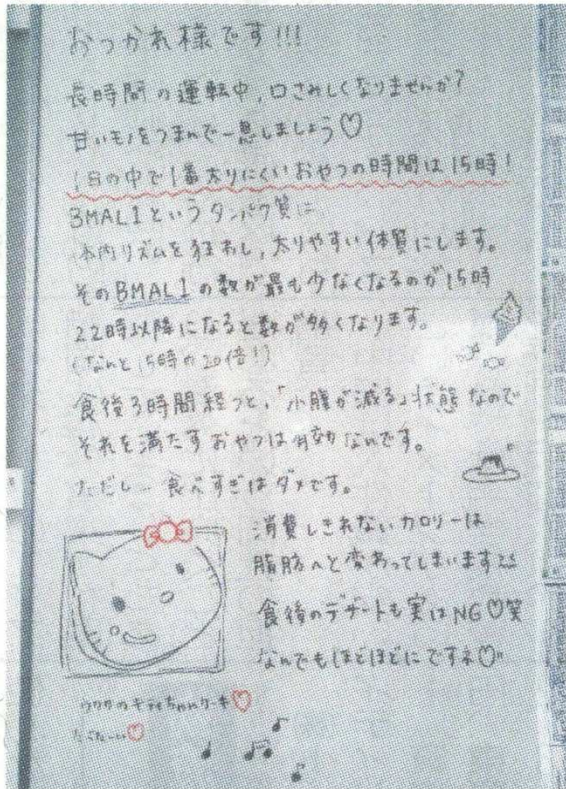 おつかれ様です!!!
長時間の運転中,口さみしくなりませんか?
甘いモノをつまんで一息しましょう♡
1日の中で1番太りにくいおやつの時間は15時!
BMAL1というタンパク質は
体内リズムを狂わし,太りやすい体質にします。
そのBMAL1の数が最も少なくなるのが15時
22時以降になると数が多くなります。
(なんと15時の20倍!)
食後3時間経つと,「小腹が減る」状態なので
それを満たすおやつは有効なんです。
ただし… 食べすぎはダメです。
消費しきれないカロリーは
脂肪へと変わってしまいます
食後のデザートも実はNG♡笑
なんでもほどほどにですネ♡
ウワサのキティちゃんケーキ♡